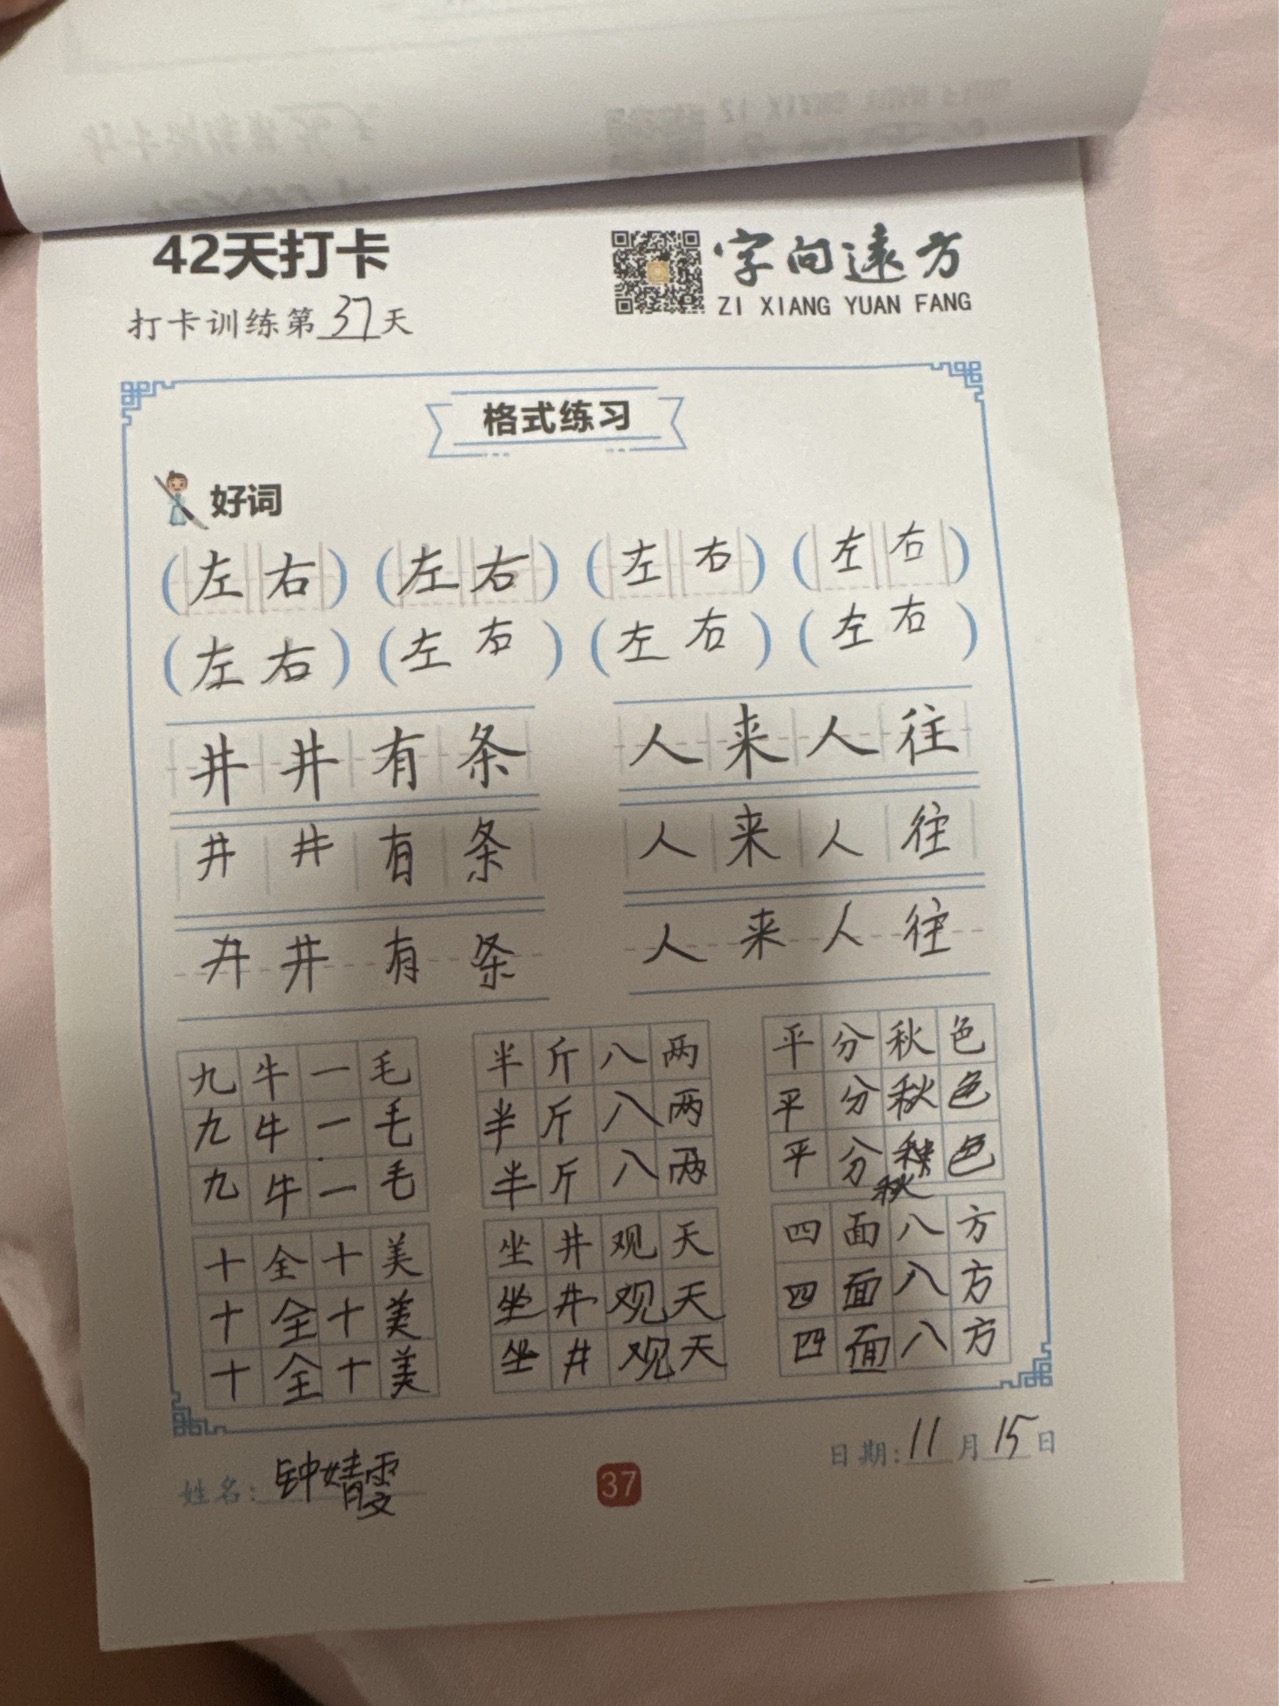 42天打卡
字向遠方
ZI XIANG YUAN FANG
打卡训练第37天
格式练习
好词
(左右) (左右) (左右) (左右)
(左右) (左右) (左右) (左右)
井井有条 人来人往
井井有条 人来人往
井井有条 人来人往
九牛一毛 半斤八两 平分秋色
九牛一毛 半斤八两 平分秋色
九牛一毛 半斤八两 平分秋色
秋
十全十美 坐井观天 四面八方
十全十美 坐井观天 四面八方
十全十美 坐井观天 四面八方
姓名:钟婧雯
37
日期:11月15日